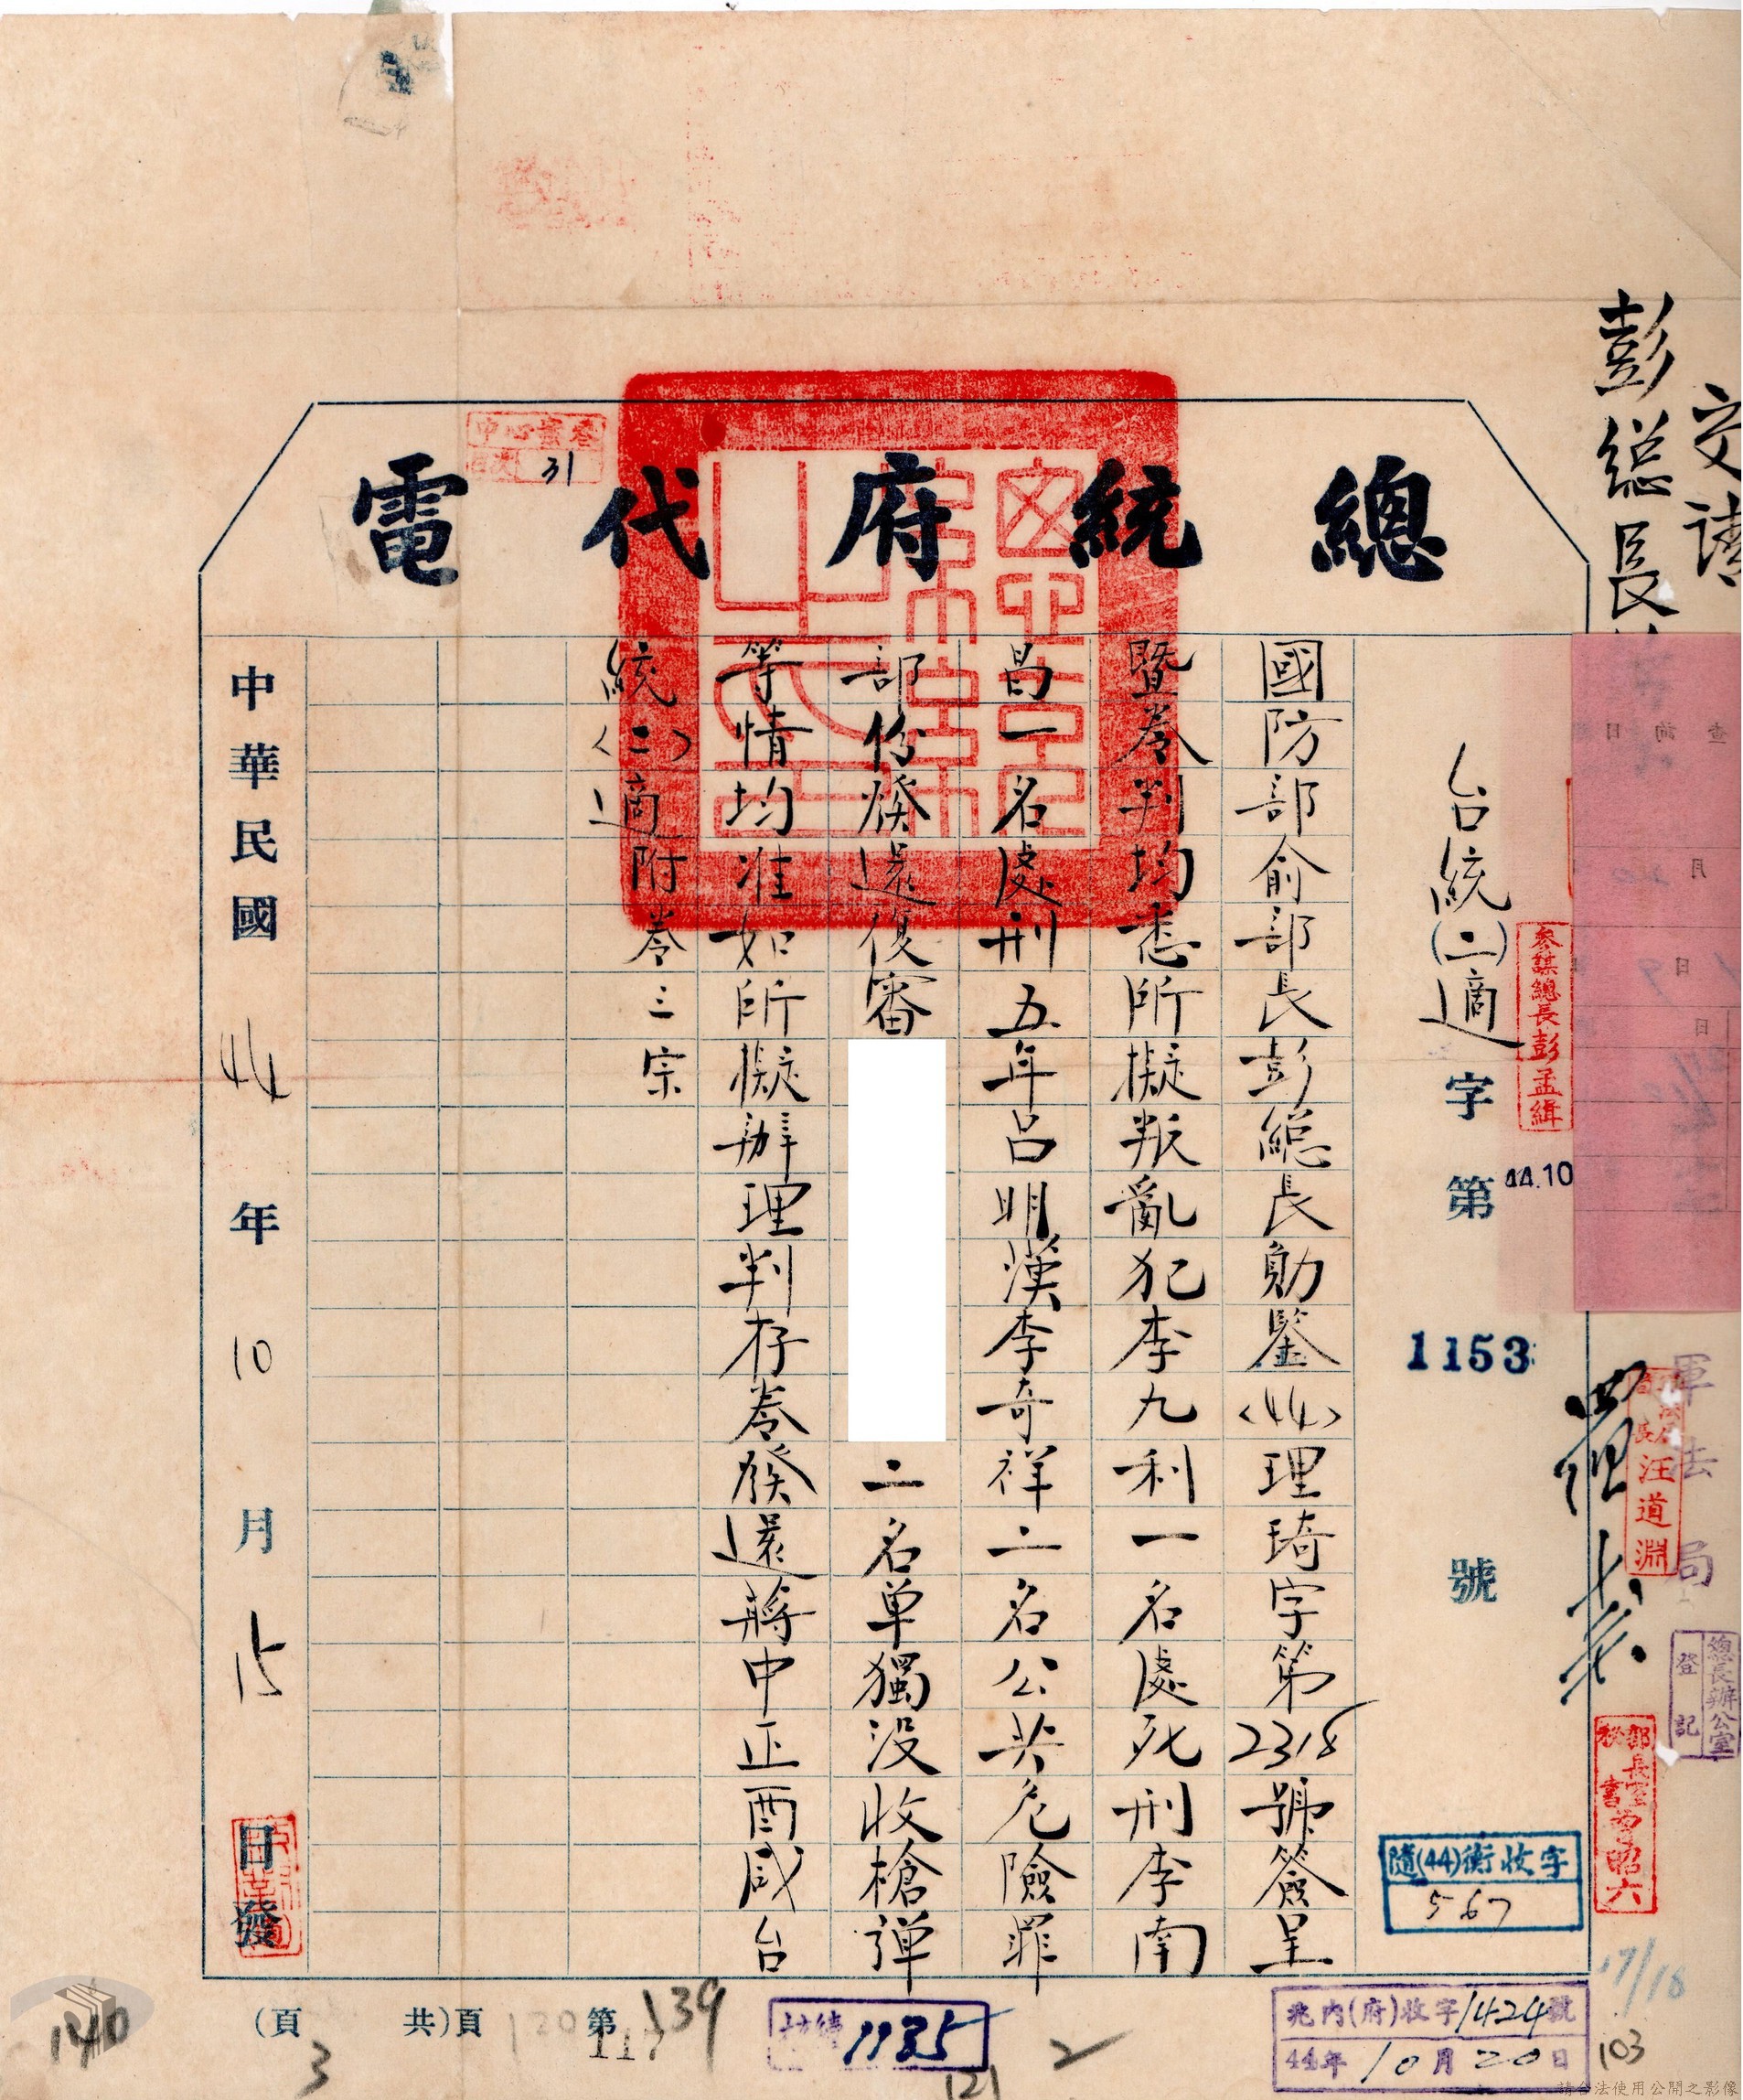 總統府代電
交請
彭總長
台統(二)適字第1153號
國防部俞部長彭總長勛鑒<44>理琦字第2318號簽呈
暨卷判均悉所擬叛亂犯李九利一名處死刑李南
昌一名處刑五年呂明漢李奇祥二名公共危險罪
部份發還復審
二名單獨没收槍彈
等情均准如所擬辦理判存卷發還蔣中正酉咸台
統<二>適附卷三宗
中華民國44年10月15日發
參謀總長彭孟緝
44.10
軍法局
汪道淵
總長辦公室
登記
隨(44)衡收字
567
兆內(府)收字1424號
44年10月20日
17/18
103
31
第 頁(共 頁)
139
120
117
1135
121
2
3
140
查詢日
月
日
請合法使用公開之影像